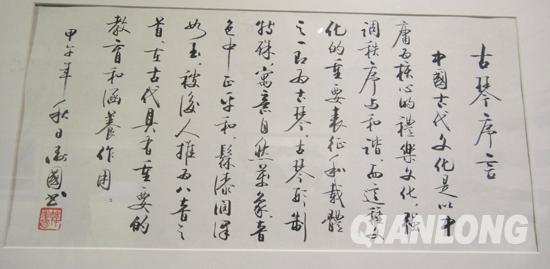 古琴序言
中國古代文化是以中
庸为核心的禮樂文化，强
调秩序与和谐，而這種文
化的重要表征和载體
之一即为古琴。古琴形制
特殊，寓意自然萬象，音
色中正平和，髹漆润泽
如玉，被後人推为八音之
首，在古代具有重要的
教育和涵養作用。
甲午年秋日國书
QIANLONG